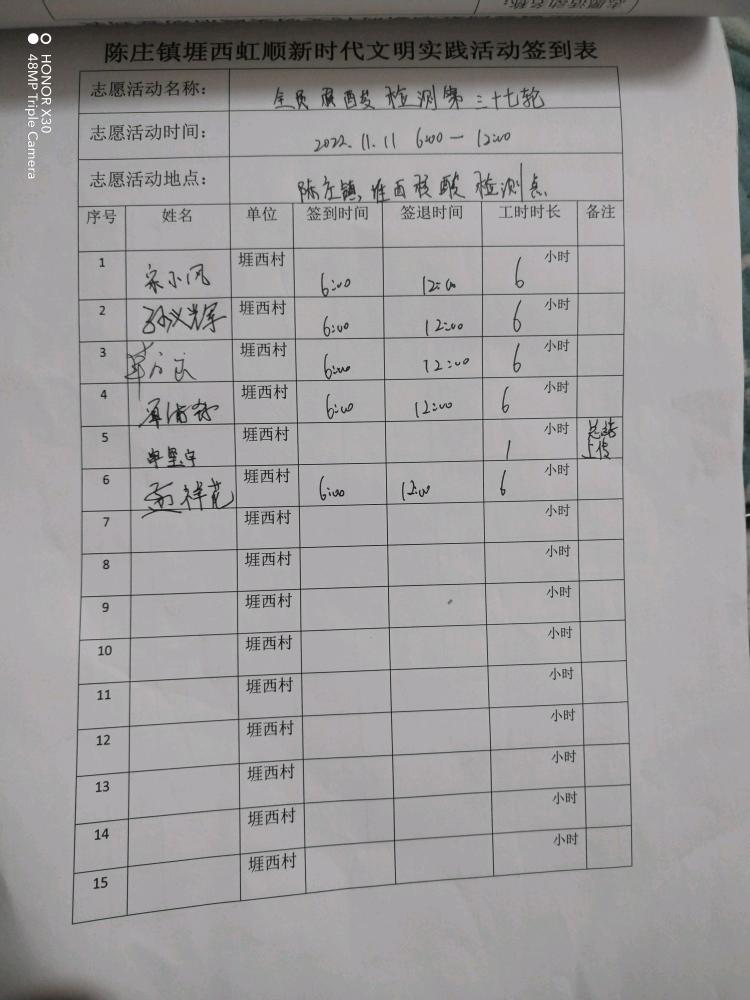 志愿活动名称:
HONOR X30
48MP Triple Camera
陈庄镇堐西虹顺新时代文明实践活动签到表
志愿活动名称: 全员核酸检测第三十七轮
志愿活动时间: 2022.11.11 6:00—12:00
志愿活动地点: 陈庄镇堐西核酸检测点
序号 姓名 单位 签到时间 签退时间 工时时长 备注
1 宋小风 堐西村 6:00 12:00 6 小时
2 孙义辉 堐西村 6:00 12:00 6 小时
3 堐西村 6:00 12:00 6 小时
4 堐西村 6:00 12:00 6 小时
5 堐西村 1 小时 总结上传
6 祥花 堐西村 6:00 12:00 6 小时
7 堐西村 小时
8 堐西村 小时
9 堐西村 小时
10 堐西村 小时
11 堐西村 小时
12 堐西村 小时
13 堐西村 小时
14 堐西村 小时
15 堐西村 小时